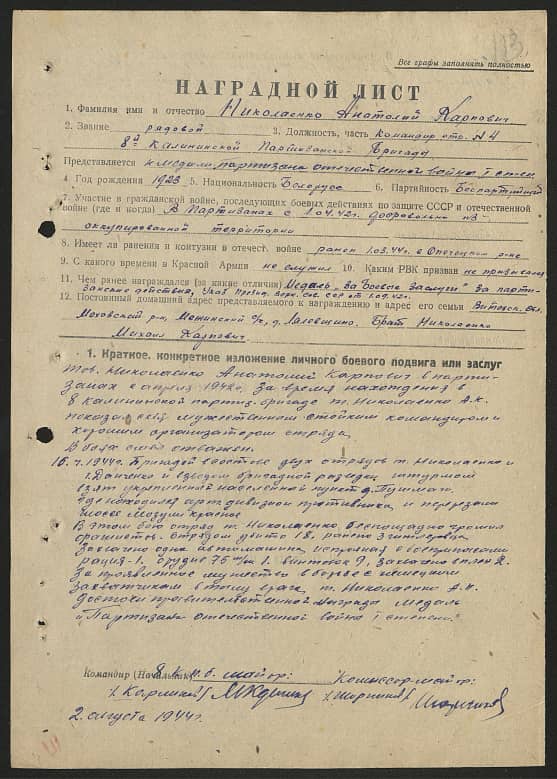 113
Все графы заполнять полностью
НАГРАДНОЙ ЛИСТ
1. Фамилия имя и отчество Николаенко Анатолий Карпович
2. Звание рядовой 3. Должность, часть Командир отр. №4
8й Калининской Партизанской Бригады
Представляется к медали партизана отечественной войны I степ.
4. Год рождения 1923 5. Национальность Белорусс 6. Партийность Беспартийный
7. Участие в гражданской войне, последующих боевых действиях по защите СССР и отечественной
войне (где и когда) В Партизанах с 1.04.42г. добровольно из
оккупированной территории
8. Имеет ли ранения и контузии в отечест. войне ранен 1.03.44г. в Опочецком р-не
9. С какого времени в Красной Армии не служил 10. Каким РВК призван не призван
11. Чем ранее награждался (за какие отличия) Медаль "За боевые заслуги" За парти-
занские действия, Указ през. верх. сов. ссср от
12. Постоянный домашний адрес представляемого к награждению и адрес его семьи Витебск. обл.
Меховский р-н, с/с, д. Брат Николаенко
Михаил Карпович
1. Краткое, конкретное изложение личного боевого подвига или заслуг
Тов. Николаенко Анатолий Карпович в парти-
занах с апреля 1942г. За время нахождения в
8 калининской партиз. бригаде т. Николаенко А.К.
показал себя мужественным стойким командиром и
хорошим организатором отряда.
В боях смел отважен.
1944г. Бригадой в составе двух отрядов т. Николаенко и
т. Данченко и взводом бригадной разведки штурмом
взят укрепленный населенный пункт д.
где находился арт. дивизион противника и перерезали
шоссе
В этом бою отряд т. Николаенко беспощадно громил
фашистов. Отрядом убито 18, ранено 3 гитлеровца
Захвачено одна автомашина исправная с боеприпасами
рация-1. орудие 76 м/м 1. Винтовок 9, захвачено в плен 2.
За проявленное мужество в борьбе с немецкими
захватчиками в тылу врага т. Николаенко А.К.
достоин правительственной награды медаль
"Партизана отечественной войны I степени"
Командир (Начальник) 8 К.п.б. майор: Комиссар майор:
2 августа 1944г.